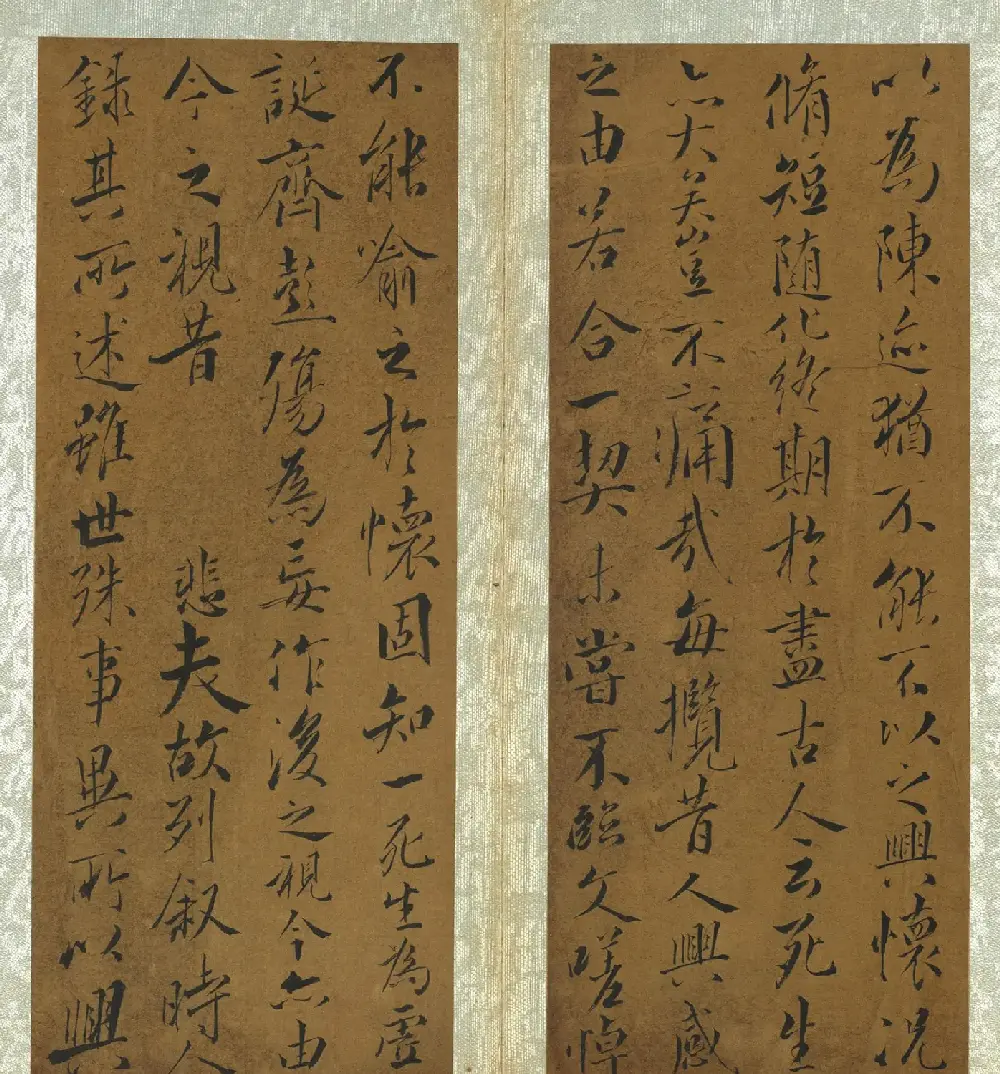 以為陳迹猶不能不以之興懷況
脩短随化終期於盡古人云死生
亦大矣豈不痛哉每攬昔人興感
之由若合一契未嘗不臨文嗟悼
不能喻之於懷固知一死生為虛
誕齊彭殤為妄作後之視今亦由
今之視昔 悲夫故列叙時人
錄其所述雖世殊事異所以興